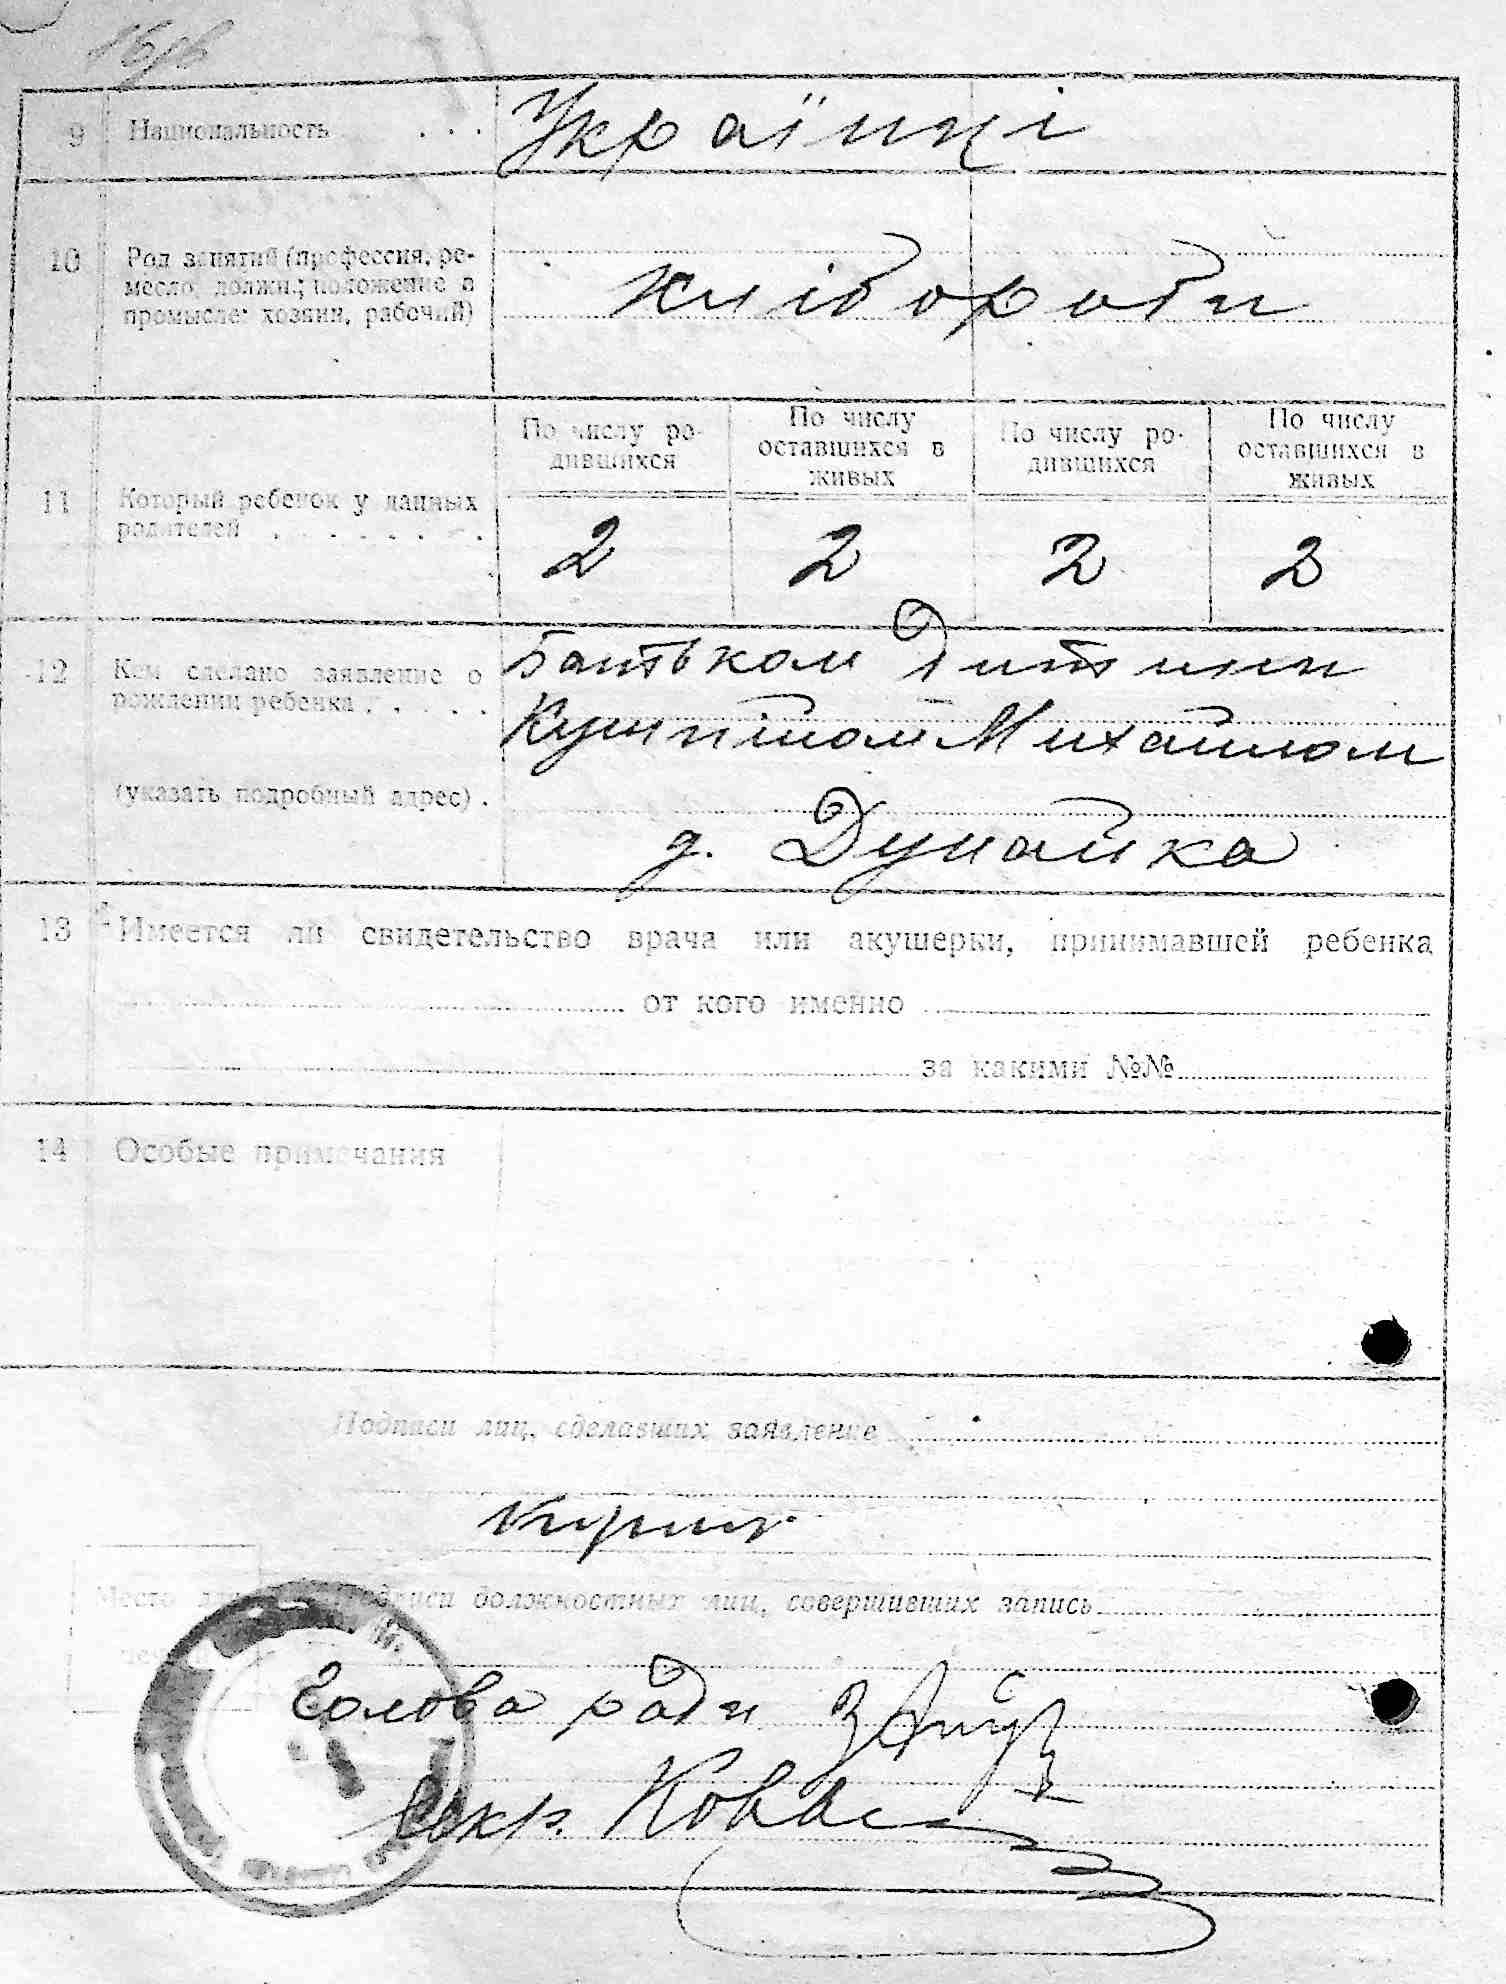 9 Национальность . . . Українці
10 Род занятий (профессия, ре-
месло, должн.; положение в
промысле: хозяин, рабочий)
хлібороби
По числу ро-
дившихся
По числу
оставшихся в
живых
По числу ро-
дившихся
По числу
оставшихся в
живых
11 Который ребенок у данных
родителей . . . . . . . .
2 2 2 2
12 Кем сделано заявление о
рождении ребенка . . . . .
Батьком дитини
Михайлом
(указать подробный адрес) .
д. Дунайка
13 Имеется ли свидетельство врача или акушерки, принимавшей ребенка
от кого именно
за какими №№
14 Особые примечания
Подписи лиц, сделавших заявление
Место для
Подписи должностных лиц, совершивших запись
печати
Голова ради
Секр.